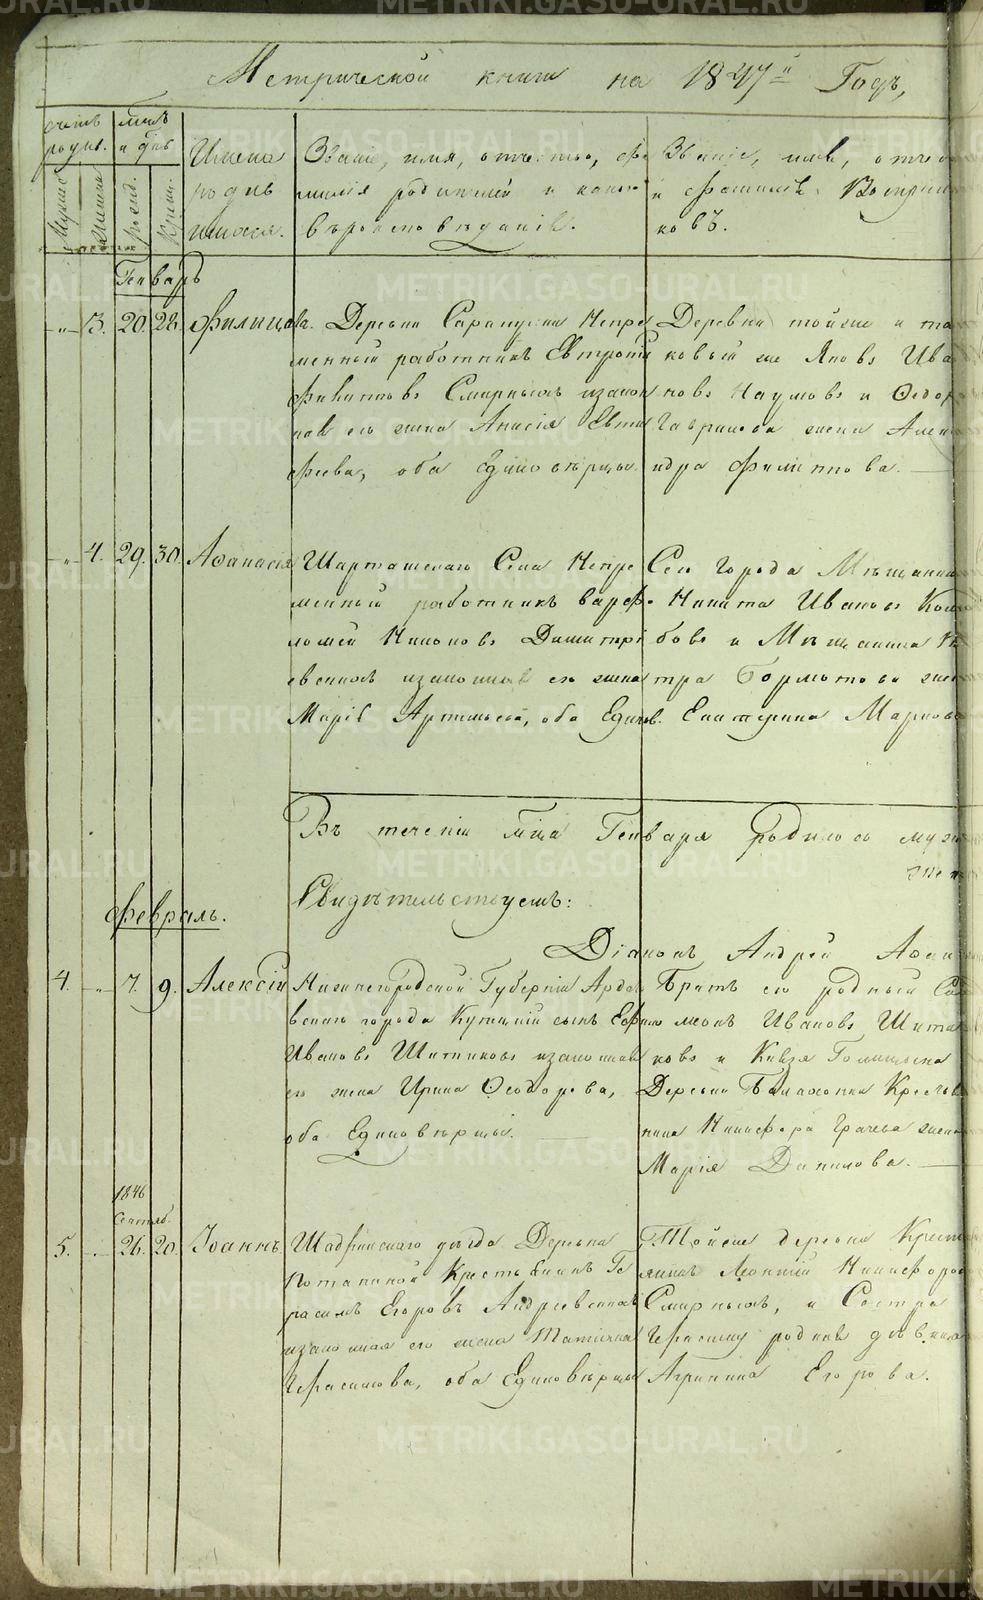 Метрической книги на 1847й Годъ,
счетъ родив.
м-цъ и дн.
Мужес
Женска
рожд.
Крещ.
Имена
родив
шихся.
Званіе, имя, отчество, фа
милія родителей и какого
вѣроисповѣданія.
Званіе, имя, отче
и фамилія Воспріем
ковъ.
Генварь
"
3.
20.
28.
Филица
Деревни Сарапулки Непре
менный работникъ Евтропій
Филиповъ Смирныхъ и закон
ная его жена Анисія Евти
фіева, оба Единовѣрцы
Деревни тойже и та
ковый же Яковъ Ива
новъ Наумовъ и Ѳедор
Гаврилова жена Алек
ндра Филиппова.
"
4.
29.
30.
Аѳанасія
Шарташскаго Села Непре
менный работникъ Варфо
ломей Никоновъ Димитрі
евскихъ и законная его жена
Марія Артемьева, оба Единов.
Сего Города Мѣщанин
Никита Ивановъ
бовъ и Мѣщанина
тра Бормотова жен
Екатерина Маркова
Въ теченіи М-ца Генваря родилось муж
жен
Свидѣтельствуемъ:
Діаконъ Андрей
Февраль.
4.
"
7.
9.
Алексій
Нижегородской Губерніи Ардо
вскаго города Купецкій сынъ Ефимъ
Ивановъ Шитиковъ и законная
его жена Ирина Ѳеодорова,
оба Единовѣрцы.
Братъ его родный Со
ломонъ Ивановъ Шити
ковъ и Князя Голицына
Деревни Балахонки Крестья
нина Никифора Грачева жена
Марія Данилова.
1846
Сентяб.
5.
"
26.
20.
Іоаннъ
Шадринскаго уѣзда Деревни
Потаниной Крестьянинъ Ге
расимъ Егоровъ Андреевскихъ
и законная его жена Матрена
Герасимова, оба Единовѣрцы
Тойже деревни Кресть
янинъ Леонтій Никифоров
Смирныхъ, и Сестра
Герасиму родная дѣвица
Агрипина Егорова.
METRIKI.GASO-URAL.RU